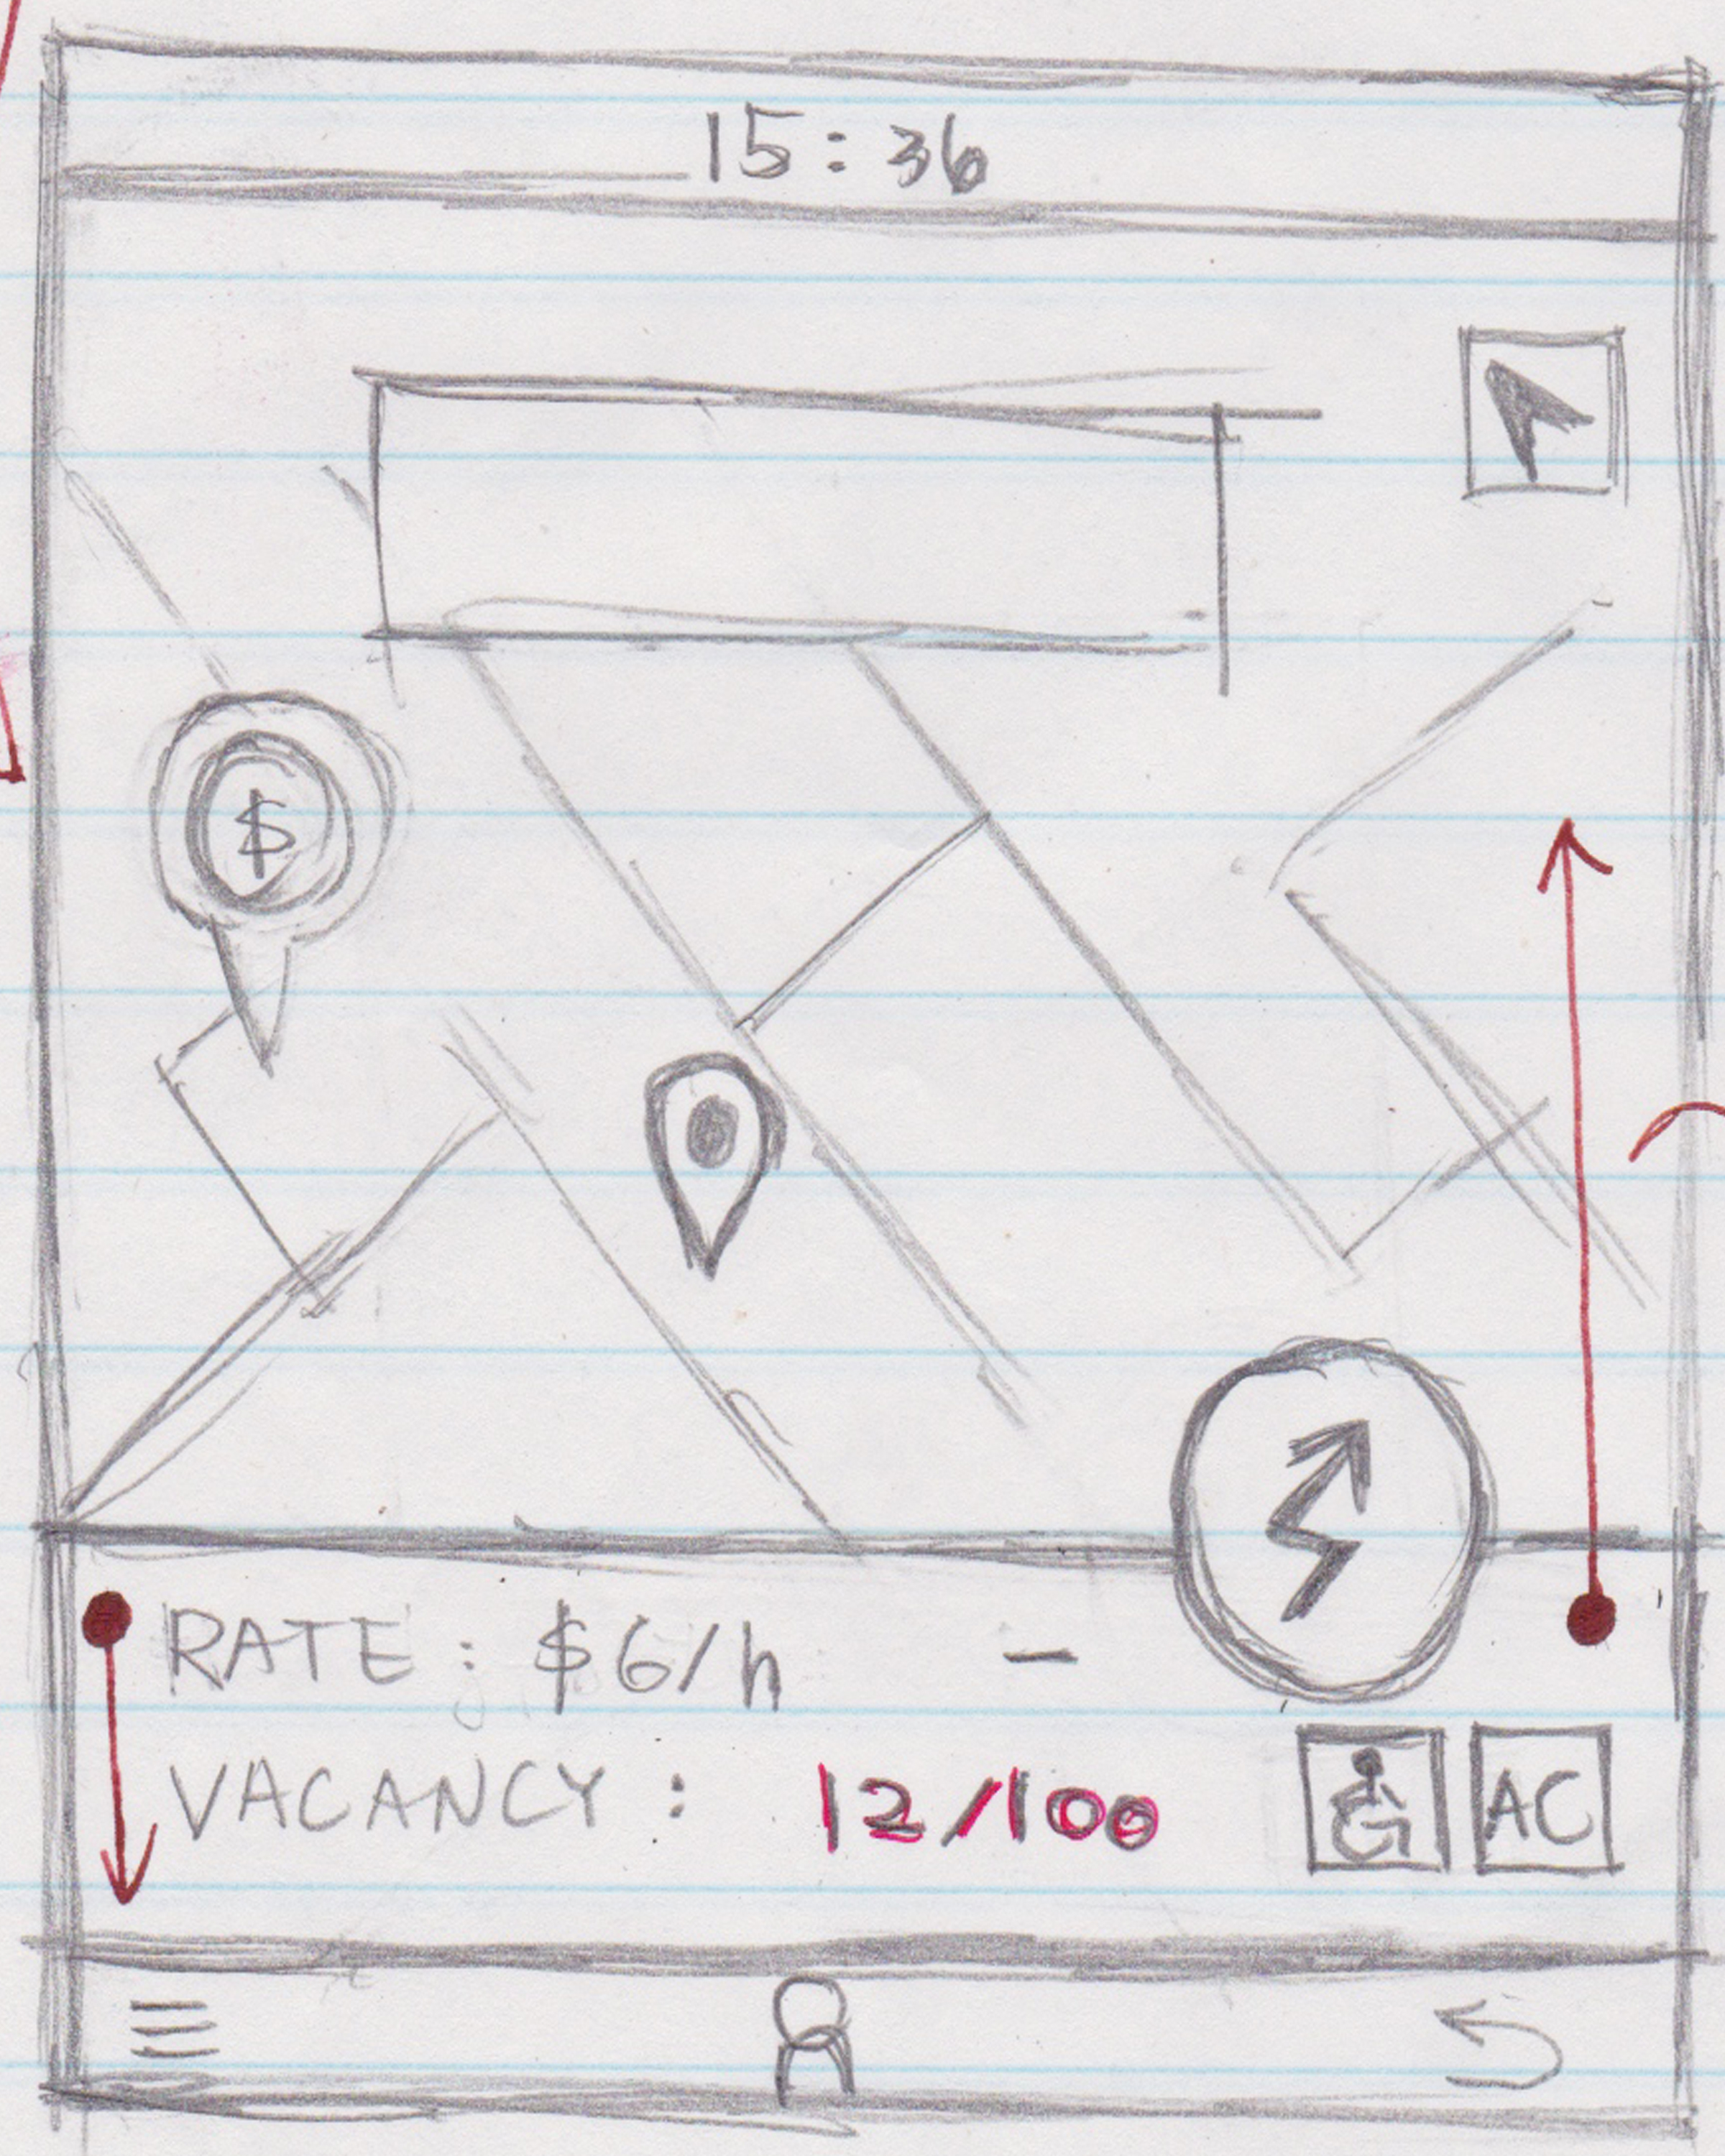 15:36
$
RATE: $6/h -
VACANCY: 12/100
AC